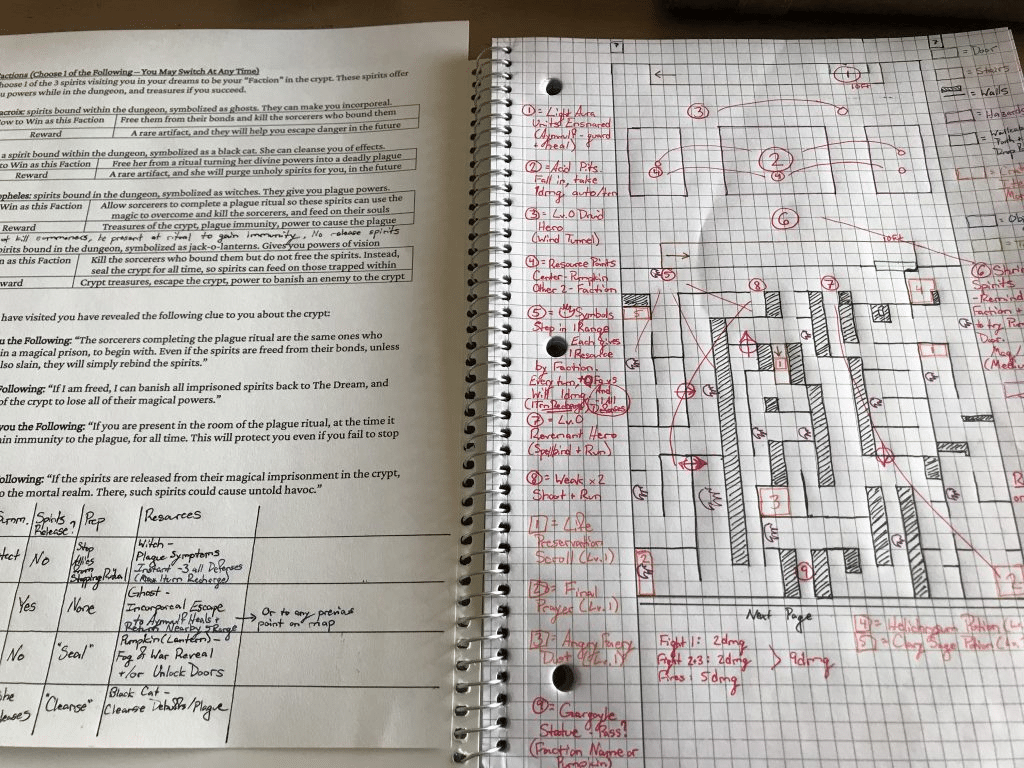 actions (Choose 1 of the Following – You May Switch At Any Time)
hoose 1 of the 3 spirits visiting you in your dreams to be your "Faction" in the crypt. These spirits offer
u powers while in the dungeon, and treasures if you succeed.
acroix: spirits bound within the dungeon, symbolized as ghosts. They can make you incorporeal.
ow to Win as this Faction Free them from their bonds and kill the sorcerers who bound them
Reward A rare artifact, and they will help you escape danger in the future
a spirit bound within the dungeon, symbolized as a black cat. She can cleanse you of effects.
to Win as this Faction Free her from a ritual turning her divine powers into a deadly plague
Reward A rare artifact, and she will purge unholy spirits for you, in the future
opheles: spirits bound in the dungeon, symbolized as witches. They give you plague powers.
Win as this Faction Allow sorcerers to complete a plague ritual so these spirits can use the
magic to overcome and kill the sorcerers, and feed on their souls
Reward Treasures of the crypt, plague immunity, power to cause the plague
be present at ritual to gain immunity, No release spirits
pirits bound in the dungeon, symbolized as jack-o-lanterns. Gives you powers of vision
n as this Faction Kill the sorcerers who bound them but do not free the spirits. Instead,
seal the crypt for all time, so spirits can feed on those trapped within
ward Crypt treasures, escape the crypt, power to banish an enemy to the crypt
have visited you have revealed the following clue to you about the crypt:
u the Following: "The sorcerers completing the plague ritual are the same ones who
in a magical prison, to begin with. Even if the spirits are freed from their bonds, unless
lso slain, they will simply rebind the spirits."
Following: "If I am freed, I can banish all imprisoned spirits back to The Dream, and
of the crypt to lose all of their magical powers."
you the Following: "If you are present in the room of the plague ritual, at the time it
ain immunity to the plague, for all time. This will protect you even if you fail to stop
ollowing: "If the spirits are released from their magical imprisonment in the crypt,
o the mortal realm. There, such spirits could cause untold havoc."
Spirits Release? Prep Resources
No Stop Allies From Stopping Ritual
Witch -
Plague Symptoms
Instant -3 all Defenses
(Max 1turn Recharge)
Yes None Ghost -
Incorporeal Escape
to Aymalf Heals +
Return Nearby 5 Range
→ Or to any previous
point on map
No "Seal" Pumpkin (Lantern) -
Fog of War Reveal
+/or Unlock Doors
"Cleanse" Black Cat -
Cleanse Debuffs/Plague
① = Light Aura
Units Ensnared
(Aymalf - guard
+ heal)
② = Acid Pits.
Fall in, take
1dmg, auto/trn
③ = Lv.0 Druid
Hero
(Wind Tunnel)
④ = Resource Points
Center: Pumpkin
Other 2 - Faction
⑤ = Symbols
Step in 1 Range
Each gives
1 Resource
by Faction.
Every turn,
Will 1dmg
(1Trn Recharge)
⑦ = Lv.0
Revenant Hero
(Spellbind + Run)
⑧ = Weak x2
Shoot + Run
1 = Life
Preservation
Scroll (Lv.1)
2 = Final
Prayer (Lv.1)
3 = Angry Faery
Dust (Lv.1)
⑨ = Gargoyle
Statue - Pass?
(Faction Name or
Pumpkin)
= Door
= Stairs
= Walls
= Hazards
① 10ft
③
②
④
④
⑥
10ft
⑤
⑧
⑦
5
4
1
1
3
2
⑨
2
⑥ Shrine
Spirits
- Remind
Faction +
to try
Door.
Next Page
Fight 1: 2dmg
Fight 2+3: 2dmg
Fires: 5dmg
> 9dmg
4 = Helichrysum Potion (Lv
5 = Clary Sage Potion (Lv.